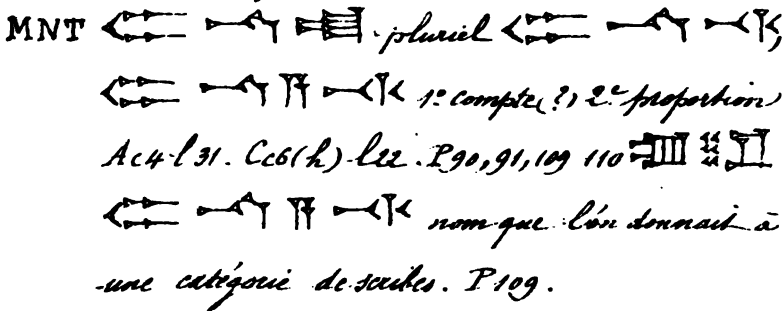 MNT 𒈪 𒈾 𒌅 . pluriel 𒈪 𒈾 𒋾,
𒈪 𒈾 𒀀 𒋾 1º compte(?) 2º proportion
Ac4 l 31. Cc6(h) l22. P90,91,109 110
𒈪 𒈾 𒀀 𒋾 nom que l'on donnait à
une catégorie de scribes. P109.